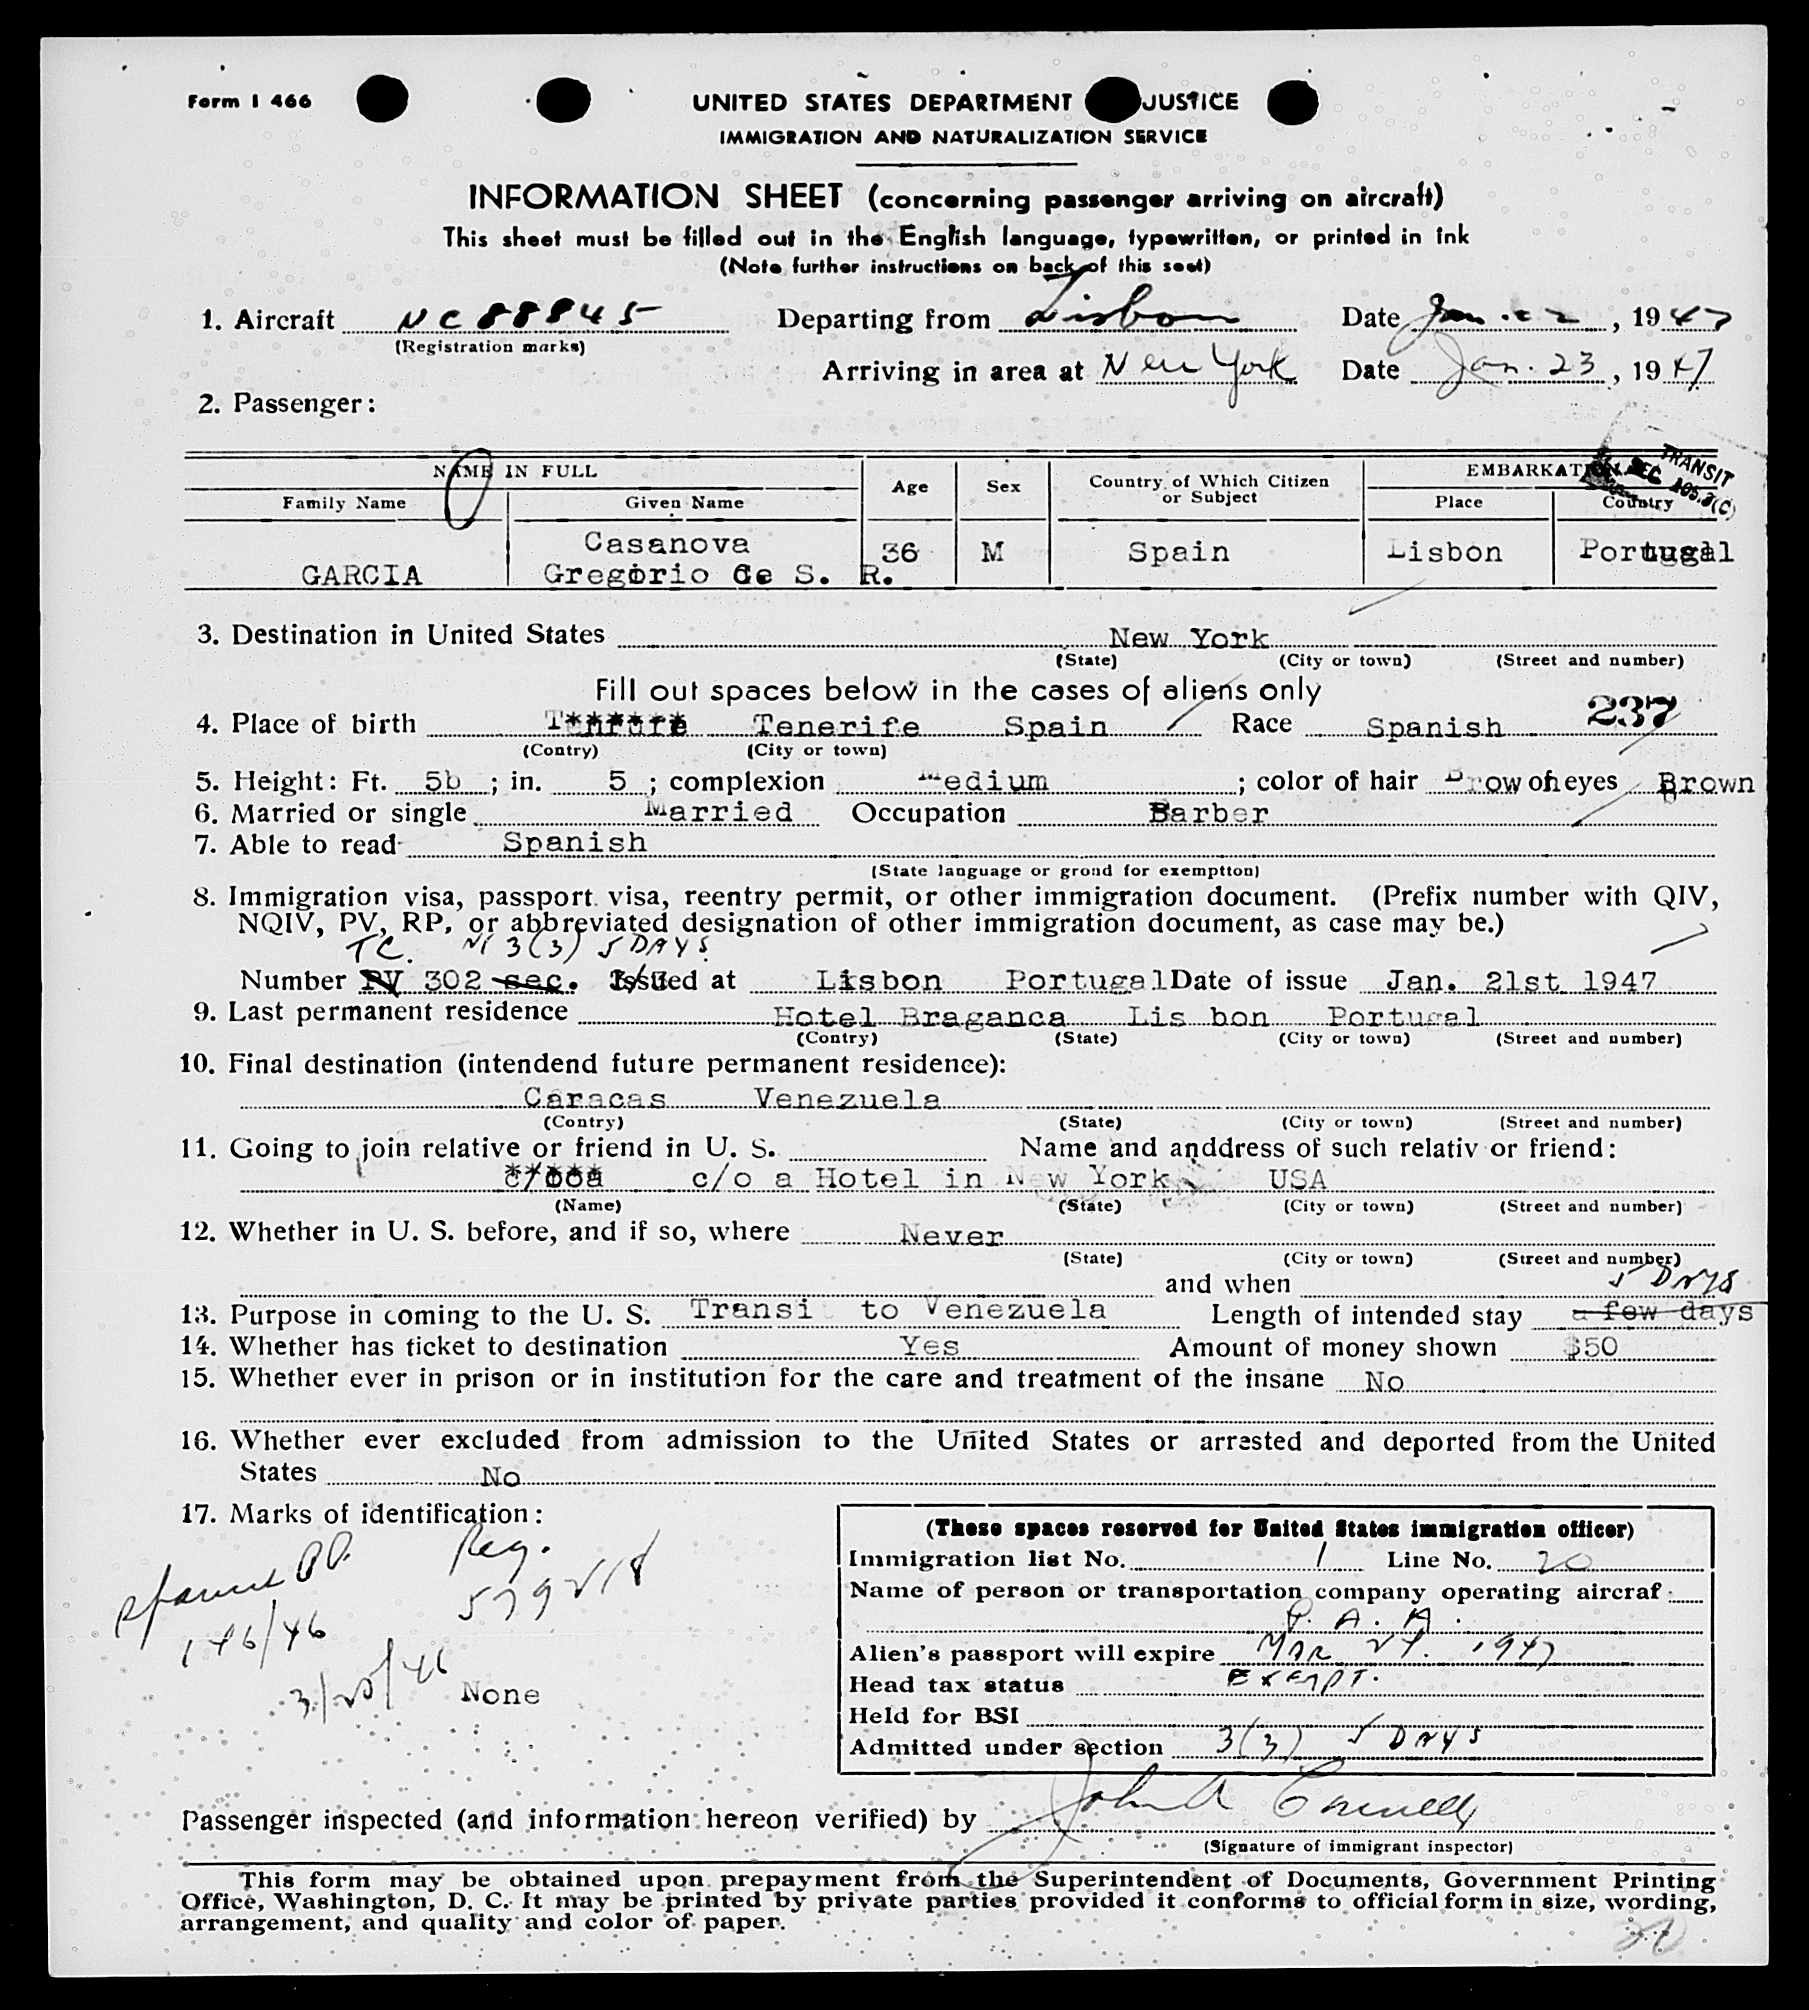 Form I 466
UNITED STATES DEPARTMENT JUSTICE
IMMIGRATION AND NATURALIZATION SERVICE
INFORMATION SHEET (concerning passenger arriving on aircraft)
This sheet must be filled out in the English language, typewritten, or printed in ink
(Note further instructions on back of this seet)
1. Aircraft NC88845 Departing from Lisbon Date Jan. 22, 1947
(Registration marks)
Arriving in area at New York Date Jan. 23, 1947
2. Passenger:
TRANSIT
SEC 105.3(C)
NAME IN FULL Age Sex Country of Which Citizen or Subject EMBARKATION
Family Name Given Name Place Country
GARCIA Casanova Gregorio de S. R. 36 M Spain Lisbon Portugal
3. Destination in United States New York
(State) (City or town) (Street and number)
Fill out spaces below in the cases of aliens only
237
4. Place of birth Tenerife Spain Race Spanish
(Contry) (City or town)
5. Height: Ft. 5b ; in. 5 ; complexion Medium ; color of hair Brow of eyes Brown
6. Married or single Married Occupation Barber
7. Able to read Spanish
(State language or grond for exemptton)
8. Immigration visa, passport visa, reentry permit, or other immigration document. (Prefix number with QIV,
NQIV, PV, RP, or abbreviated designation of other immigration document, as case may be.)
TC. NI 3(3) 5 DAYS
Number PV 302 sec. 3/3 Issued at Lisbon Portugal Date of issue Jan. 21st 1947
9. Last permanent residence Hotel Braganca Lis bon Portugal
(Contry) (State) (City or town) (Street and number)
10. Final destination (intendend future permanent residence):
Caracas Venezuela
(Contry) (State) (City or town) (Street and number)
11. Going to join relative or friend in U. S. Name and anddress of such relativ or friend:
c/o a Hotel in New York USA
(Name) (State) (City or town) (Street and number)
12. Whether in U. S. before, and if so, where Never
(State) (City or town) (Street and number)
and when
5 DAYS
13. Purpose in coming to the U. S. Transi to Venezuela Length of intended stay a few days
14. Whether has ticket to destination Yes Amount of money shown $50
15. Whether ever in prison or in institution for the care and treatment of the insane No
16. Whether ever excluded from admission to the United States or arrested and deported from the United
States No
17. Marks of identification:
Spanish PP. Reg.
146/46 579218
3/25/46 None
(These spaces reserved for United States immigration officer)
Immigration list No. 1 Line No. 20
Name of person or transportation company operating aircraf
P. A. A.
Alien's passport will expire MAR 24. 1947
Head tax status EXEMPT.
Held for BSI
Admitted under section 3(3) 5 DAYS
Passenger inspected (and information hereon verified) by John A
(Signature of immigrant inspector)
This form may be obtained upon prepayment from the Superintendent of Documents, Government Printing
Office, Washington, D. C. It may be printed by private parties provided it conforms to official form in size, wording,
arrangement, and quality and color of paper.
20